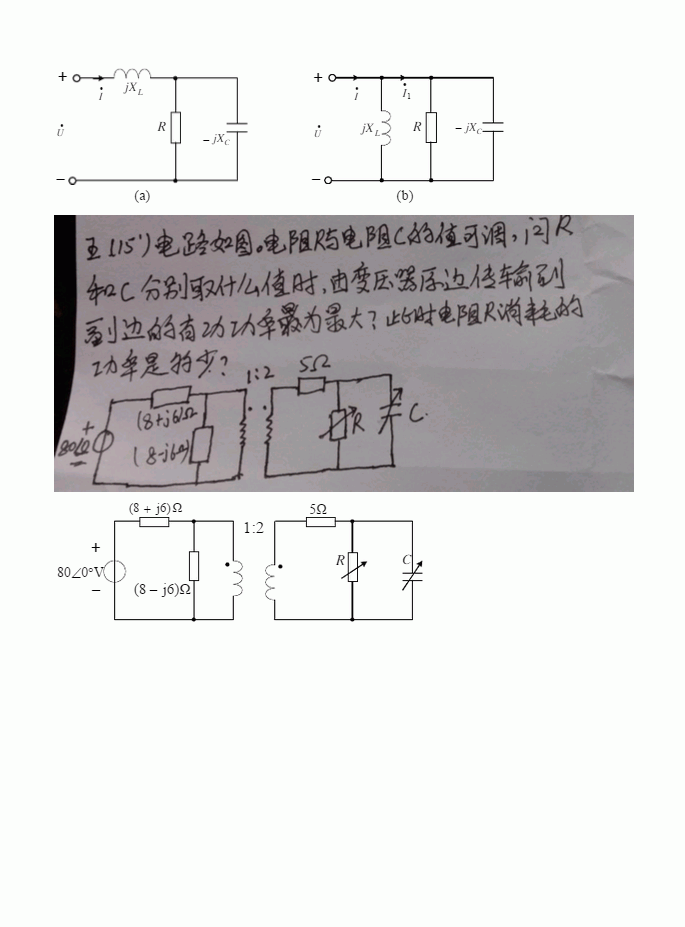 + İ jXL R − jXC U̇ −
(a)
+ İ İ1 jXL R − jXC U̇ −
(b)
五(15')电路如图。电阻R与电阻C的值可调,问R
和C分别取什么值时,由变压器原边传输到
副边的有功功率最为最大?此时电阻R消耗的
功率是多少?
1:2 5Ω
+ (8+j6)Ω R C.
80∠0° (8-j6)Ω
−
(8 + j6)Ω 5Ω
1:2
+ R C
80∠0°V
− (8 − j6)Ω